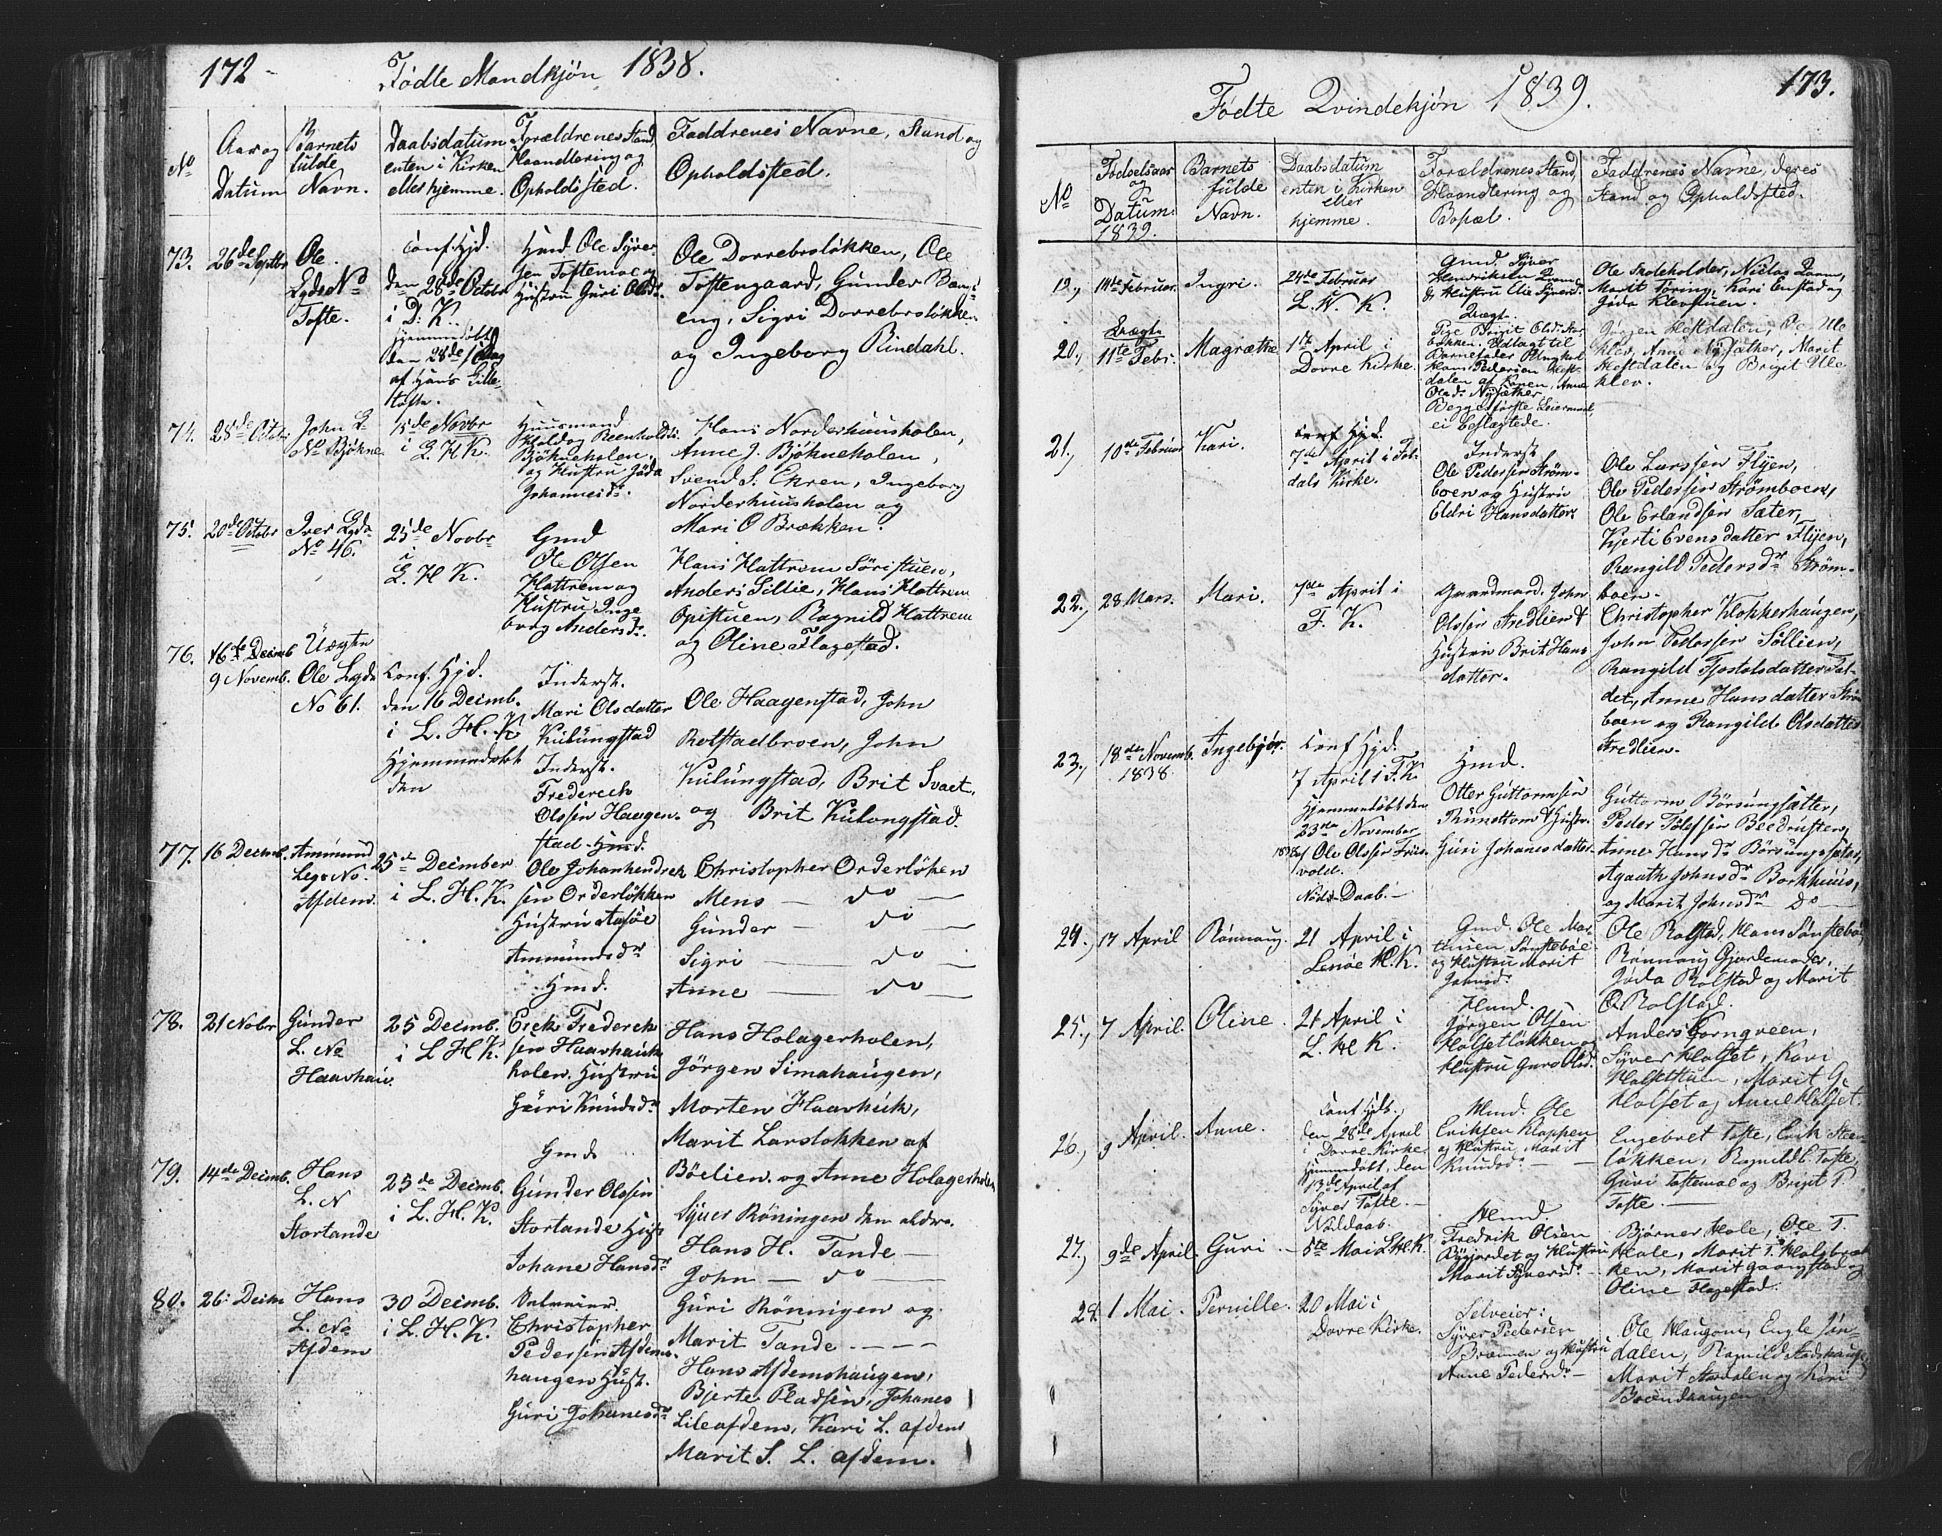 172
Fødte Mandkjøn 1838.
No
Aar og Datum
Barnets fulde Navn.
Daabsdatum enten i Kirken eller hjemme.
Forældrenes Stand, Haandtering og Opholdssted.
Faddrenes Navne, Stand og Opholdssted.
73.
26de Septbr
Ole
Tofte.
Conf. Hjd.
den 28de Octobr
i D. K.
Hmd. Ole Syver-
sen Toftemoe og
Hustru Guri Olsdr.
Ole Dorrebrsløkken, Ole
Toftengaard, Gunder Bang-
eng, Sigri Dorrebrsløkken
og Ingeborg Rindahl.
74.
28de Octobr
John L.
No Bjøkne
18de Novbr
i L. H. K.
Huusmand
Bjøkneholen,
og Hustru Jøda
Johannesdr.
Hans Norderhuusholen,
Anne J. Bjøkneholen,
Svend S. Ekren, Ingeborg
Norderhuusholen og
Mari O Brækken.
75.
20de Octobr
Iver Lgd.
No 46.
25de Novbr
i
L. H. K.
Gmd
Ole Olsen
Hattrem og
Hustru Inge
borg Andersdr.
Hans Hattrem Søristuen,
Anders Lillie, Hans Hattrem
Opistuen, Ragnild Hattrem
og Oline Flagestad.
76.
9 Novemb.
Uægte
Ole Lgds
No 61.
Conf. Hjd.
den 16 Decimb.
i L. H. K
Hjemmedøbt
den
Inderst.
Mari Olsdatter
Kulungstad
Inderst.
Frederech
Olssen Haagen-
stad
Ole Haagenstad, John
Rolstadbroen, John
Kulungstad, Brit Svaet.
og Brit Kulongstad.
77.
16 Decimb.
Ammund
Lgs No
Afdem.
25de Decimber
i L. H. K.
Hmd.
Ole Johanhendrek
sen Orderløkken
Hustru
Ammundsdr
Christopher Orderløken
Mens — do —
Gunder — do —
Sigri — do —
Anne — do —
78.
21 Nobr
Gunder
L. No
Haavhaiv.
25 Decimb.
i L. H. K.
Hmd.
Erek Frederek
sen Haavhauk
holen. Hustru
Guri Knudsdr
Hans Holagerholen,
Jörgen Simahaugen,
Morten Haavhuk,
Marit Larsløkken af
Böelien og Anne Holagerholen
79.
14de Decimb.
Hans
L. N
Stortande
25de Decimb.
i L. H. K.
Gmd.
Gunder Olssen
Stortande Hust
Johane Hansdr
Syver Röningen den eldre.
Hans H. Tande —
John — do —
Guri Rönnigen og
Marit Tande — — —
80.
26. Decim
Hans
L. No
Afdem
30 Decimb.
i L. H. K.
Christopher
Pedersen Afdems-
haugen Hust.
Guri Johanesdr
Hans Afdemshaugen,
Bjerte Pladsen, Johanes
Lileafdem, Kari L. afdem
Marit S. L. afdem.
173.
Fødte Qvindekjøn 1839.
No
Fødselsaar og Datum. 1839.
Barnets fulde Navn.
Daabsdatum enten i Kirken eller hjemme.
Forældrenes Stand, Haandtering og Bopæl.
Faddrenes Navne, deres Stand og Opholdssted.
19.,
14de Februar.
Ingri.
24de Februar
L. H. K.
Gmd. Syver
Henriksen
Ole Skoleholder,
Marit Toring, Kari Enstad og
Jøda Klevstuen.
20.,
Uægte
11te Febr.
Magrethe
1ste April i
Dovre Kirke.
Uægte.
Pige Brigit
Barnefader Ungkarl
Hans Pedersen Heft-
dalen af Konen, Anne
Begges første Leiermaal,
ei beslægtede.
Jörgen Heftdalen, Pe. Ule
klev, Anne Nysæther, Marit
Heftdalen og Brigit Ule
klev.
21.,
10de Februar
Kari.
Conf Hjd.
7de April i Fol-
dals Kirke.
Inderst
Ole Pedersen Strøm-
boen og Hustru
Eldri Hansdatter
Ole Larssen Flyen,
Ole Pedersen Strömboen,
Ole Erlandsen Sæter,
Kjersti Evensdatter Flyen,
Rangild Pedersdr Ström-
boen.
22.,
28 Mars.
Mari.
7de April i
F. K.
Gaardmand. John
Olssen Fredlien &
Hustru Brit Hans
datter.
Christopher Klokkerhaugen,
John Pedersen Söllien,
Rangild Tjostolsdatter Fol-
det, Anne Hansdatter Ström
boen og Rangild Olsdatter
Fredlien.
23.,
18de Novemb.
1838.
Ingebjør.
Conf Hjd.
7 April i F. K
Hjemmedøbt den
23de November
1838 af Ole Olssen Fries-
vold.
Nöds-Daab. —
Hmd.
Otter Guttormsen
Guri Johanesdatter.
Guttorm Börsungsætter,
Anne Hansdr Börsungsæter,
Agaath Johnsdr Borkhuus,
og Marit Johnsdr Do —
24.,
17 April
Rönnaug.
21 April i
Lesøe H. K.
Gmd. Ole Mat-
thisen Sönstebøe
og Hustru Marit
Ole Rolstad, Hans Sönstebö
Rönnaug Gjordemoder,
Jöda Rolstad og Marit
O. Rolstad.
25.,
7 April.
Oline.
21 April i
L. H K.
Hmd
Jörgen Olsen
Holsetløkken og
Hustru Guro Olsdr.
Anders Korngveen,
Syver Holset, Kari
Holsettuen, Marit G
Holset og Anne Holset.
26.,
9 April.
Anne.
Conf Hjd.
den 28de April
i Dovre Kirke
Hjemmedøbt, den
13de April af
Syver Tofte. —
Nöddaab.
Hmd. Ole
Eriksen Kloppen
og Hustru Marit
Knudsdr —
Engebret Tofte, Erik Steen
løkken, Ragnild L. Tofte,
Guri Toftemoe og Brigit P.
Tofte. —
27.,
9de April.
Guri. —
5te Mai L. H. K.
Hmd.
Fredrik Olsen
Byjordet og Hustru
Marit Syversdr. —
Bjørner Hole, Ole T.
Hole, Marit T. Holsbræk
ken, Marit Gaangstad og
Oline Flagestad.
28.
1 Mai.
Pernille.
20 Mai i
Dovre Kirke.
Selveier:
Syver Pedersen
Brænnen og Hustru
Anne Pedersdr —
Ole Haugom, Engle Jøn-
dalen, Ragnild Stadshaug,
Marit Stordalen og Kari
Brændhaugen.